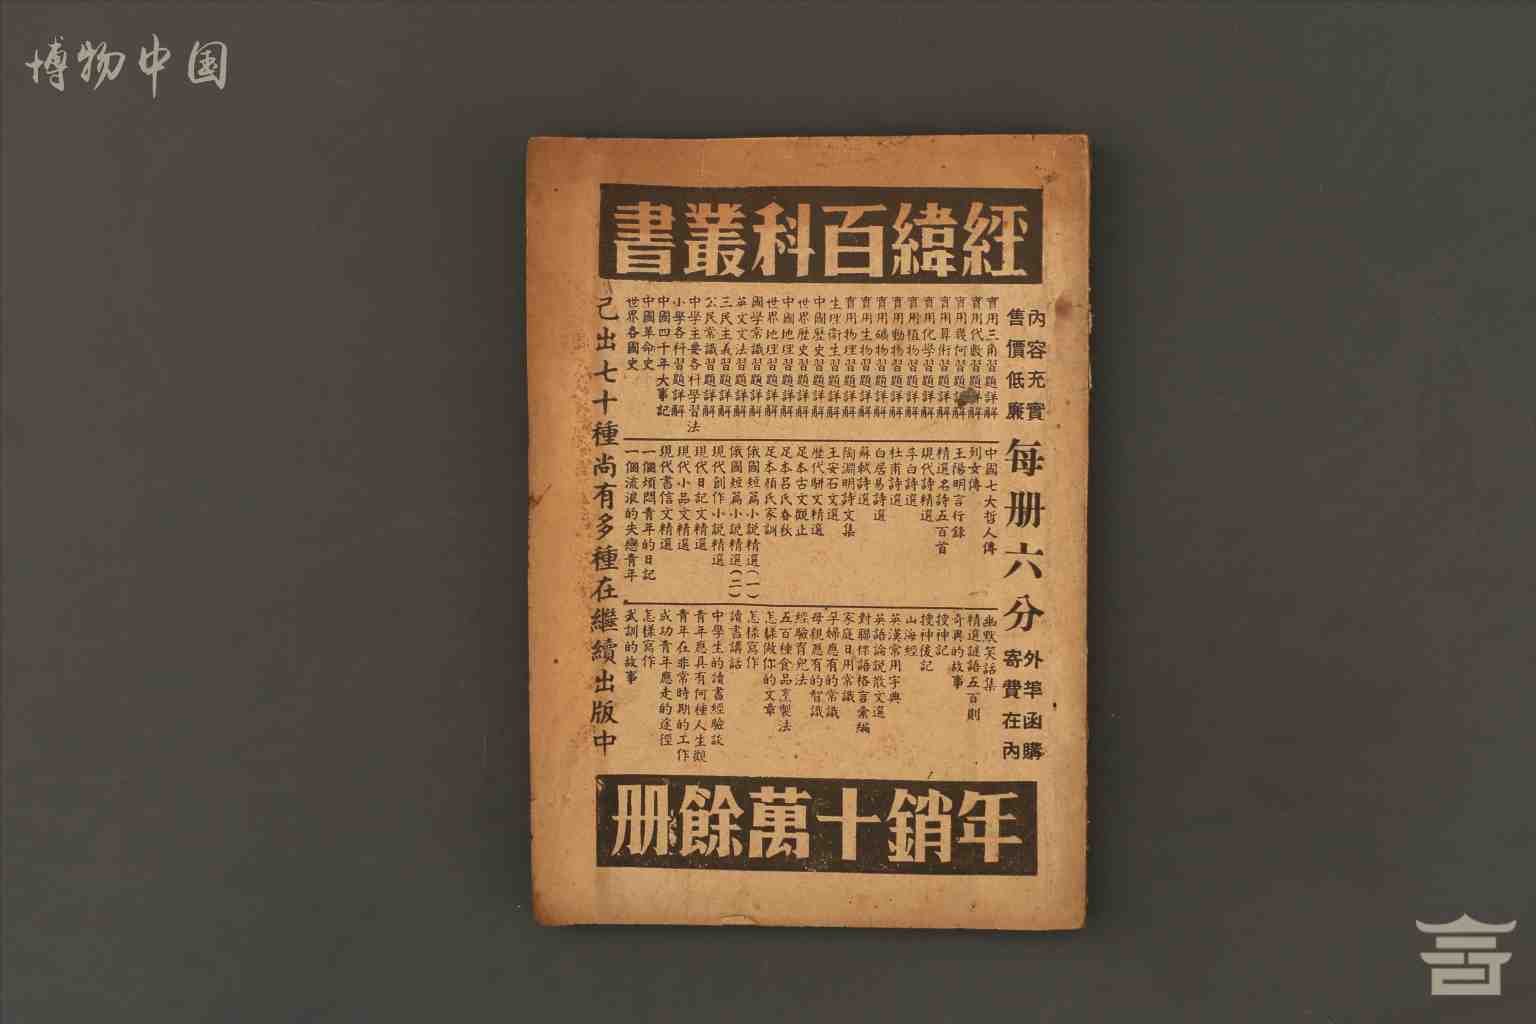 博物中国
經緯百科叢書
內容充實
售價低廉
每册六分
外埠函購
寄費在內
實用三角習題詳解
實用代數習題詳解
實用幾何習題詳解
實用算術習題詳解
實用化學習題詳解
實用植物習題詳解
實用動物習題詳解
實用礦物習題詳解
實用生物習題詳解
實用物理習題詳解
生理衛生習題詳解
中國歷史習題詳解
世界歷史習題詳解
中國地理習題詳解
世界地理習題詳解
國學常識習題詳解
英文文法習題詳解
三民主義習題詳解
公民常識習題詳解
中學主要各科學習法
小學各科習題詳解
中國四十年大事記
中國革命史
世界各國史
中國七大哲人傳
列女傳
王陽明言行錄
精選名詩五百首
現代詩精選
李白詩選
杜甫詩選
白居易詩選
蘇軾詩選
陶淵明詩文集
王安石文選
歷代駢文精選
足本古文觀止
足本呂氏春秋
足本顏氏家訓
俄國短篇小說精選(一)
俄國短篇小說精選(二)
現代創作小說精選
現代日記文精選
現代小品文精選
現代書信文精選
一個煩悶青年的日記
一個流浪的失戀青年
幽默笑話集
精選謎語五百則
奇異的故事
搜神記
搜神後記
山海經
英漢常用字典
英語論說散文選
對聯標語格言彙編
家庭日用常識
孕婦應有的常識
母親應有的智識
經驗育兒法
五百種食品烹製法
怎樣做你的文章
怎樣寫作
讀書講話
中學生的讀書經驗談
青年應具有何種人生觀
青年在非常時期的工作
成功青年應走的途徑
怎樣寫作
武訓的故事
已出七十種尚有多種在繼續出版中
年銷十萬餘册